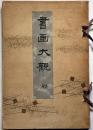 書画大観